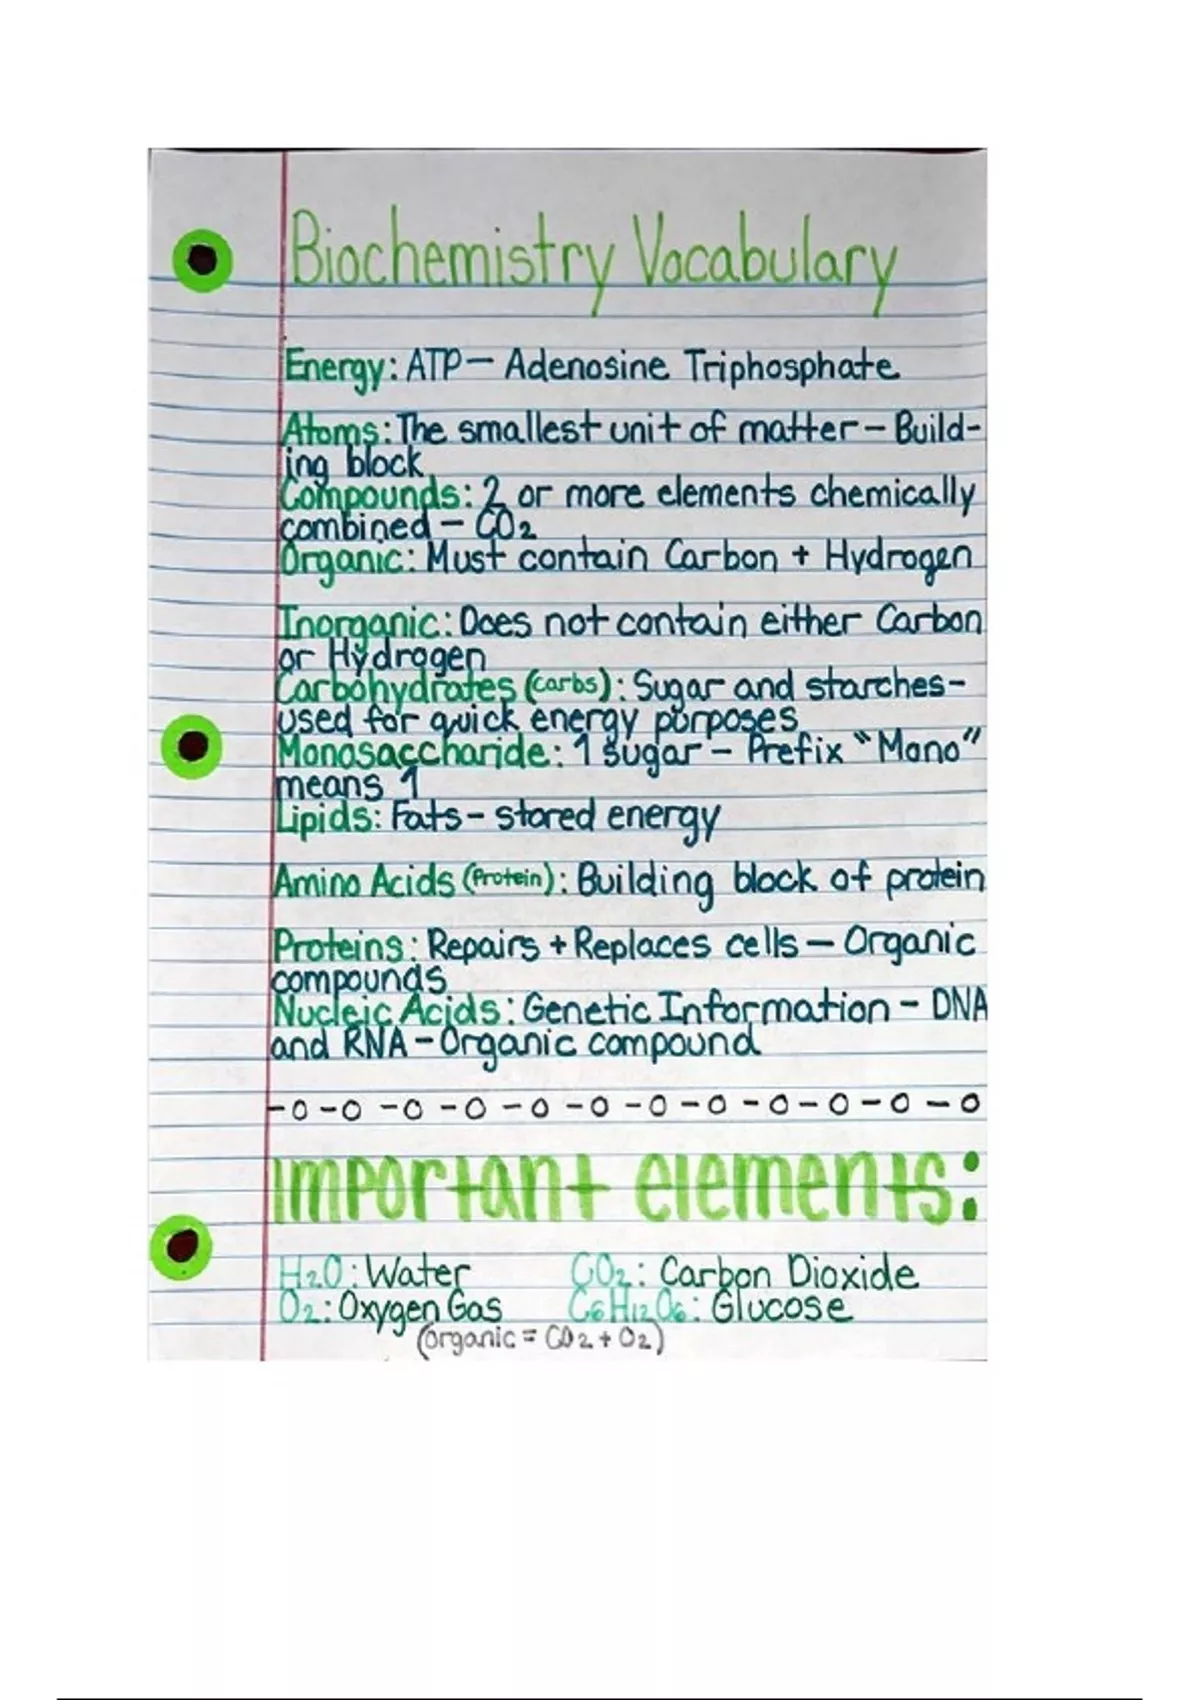 Biochemistry Vocabulary
Energy: ATP — Adenosine Triphosphate
Atoms: The smallest unit of matter — Build-
ing block
Compounds: 2 or more elements chemically
combined — CO₂
Organic: Must contain Carbon + Hydrogen
Inorganic: Does not contain either Carbon
or Hydrogen
Carbohydrates (carbs): Sugar and starches-
used for quick energy purposes
Monosaccharide: 1 sugar — Prefix "Mono"
means 1
Lipids: Fats - stored energy
Amino Acids (Protein): Building block of protein
Proteins: Repairs + Replaces cells — Organic
compounds
Nucleic Acids: Genetic Information — DNA
and RNA — Organic compound
Important elements:
H₂O: Water CO₂: Carbon Dioxide
O₂: Oxygen Gas C₆H₁₂O₆: Glucose
(organic = CO₂ + O₂)